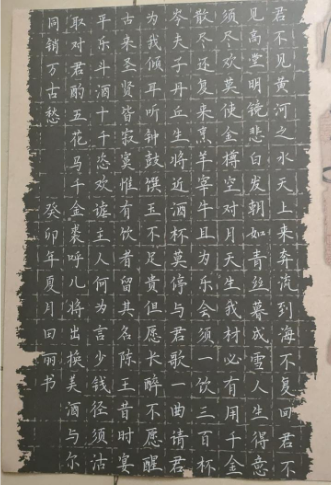 君不见黄河之水天上来奔流到海不复回君不
见高堂明镜悲白发朝如青丝暮成雪人生得意
须尽欢莫使金樽空对月天生我材必有用千金
散尽还复来烹羊宰牛且为乐会须一饮三百杯
岑夫子丹丘生将近酒杯莫停与君歌一曲请君
为我倾耳听钟鼓馔玉不足贵但愿长醉不愿醒
古来圣贤皆寂寞惟有饮者留其名陈王昔时宴
平乐斗酒十千恣欢谑主人何为言少钱径须沽
取对君酌五花马千金裘呼儿将出换美酒与尔
同销万古愁 癸卯年夏月田丽书